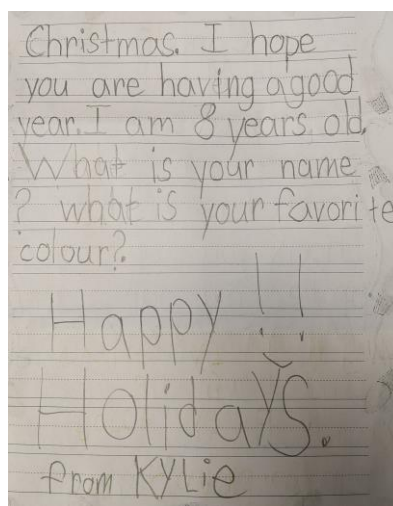 Christmas. I hope
you are having a good
year. I am 8 years old.
What is your name
? what is your favorite
colour?
Happy !!
Holidays.
from KYLie